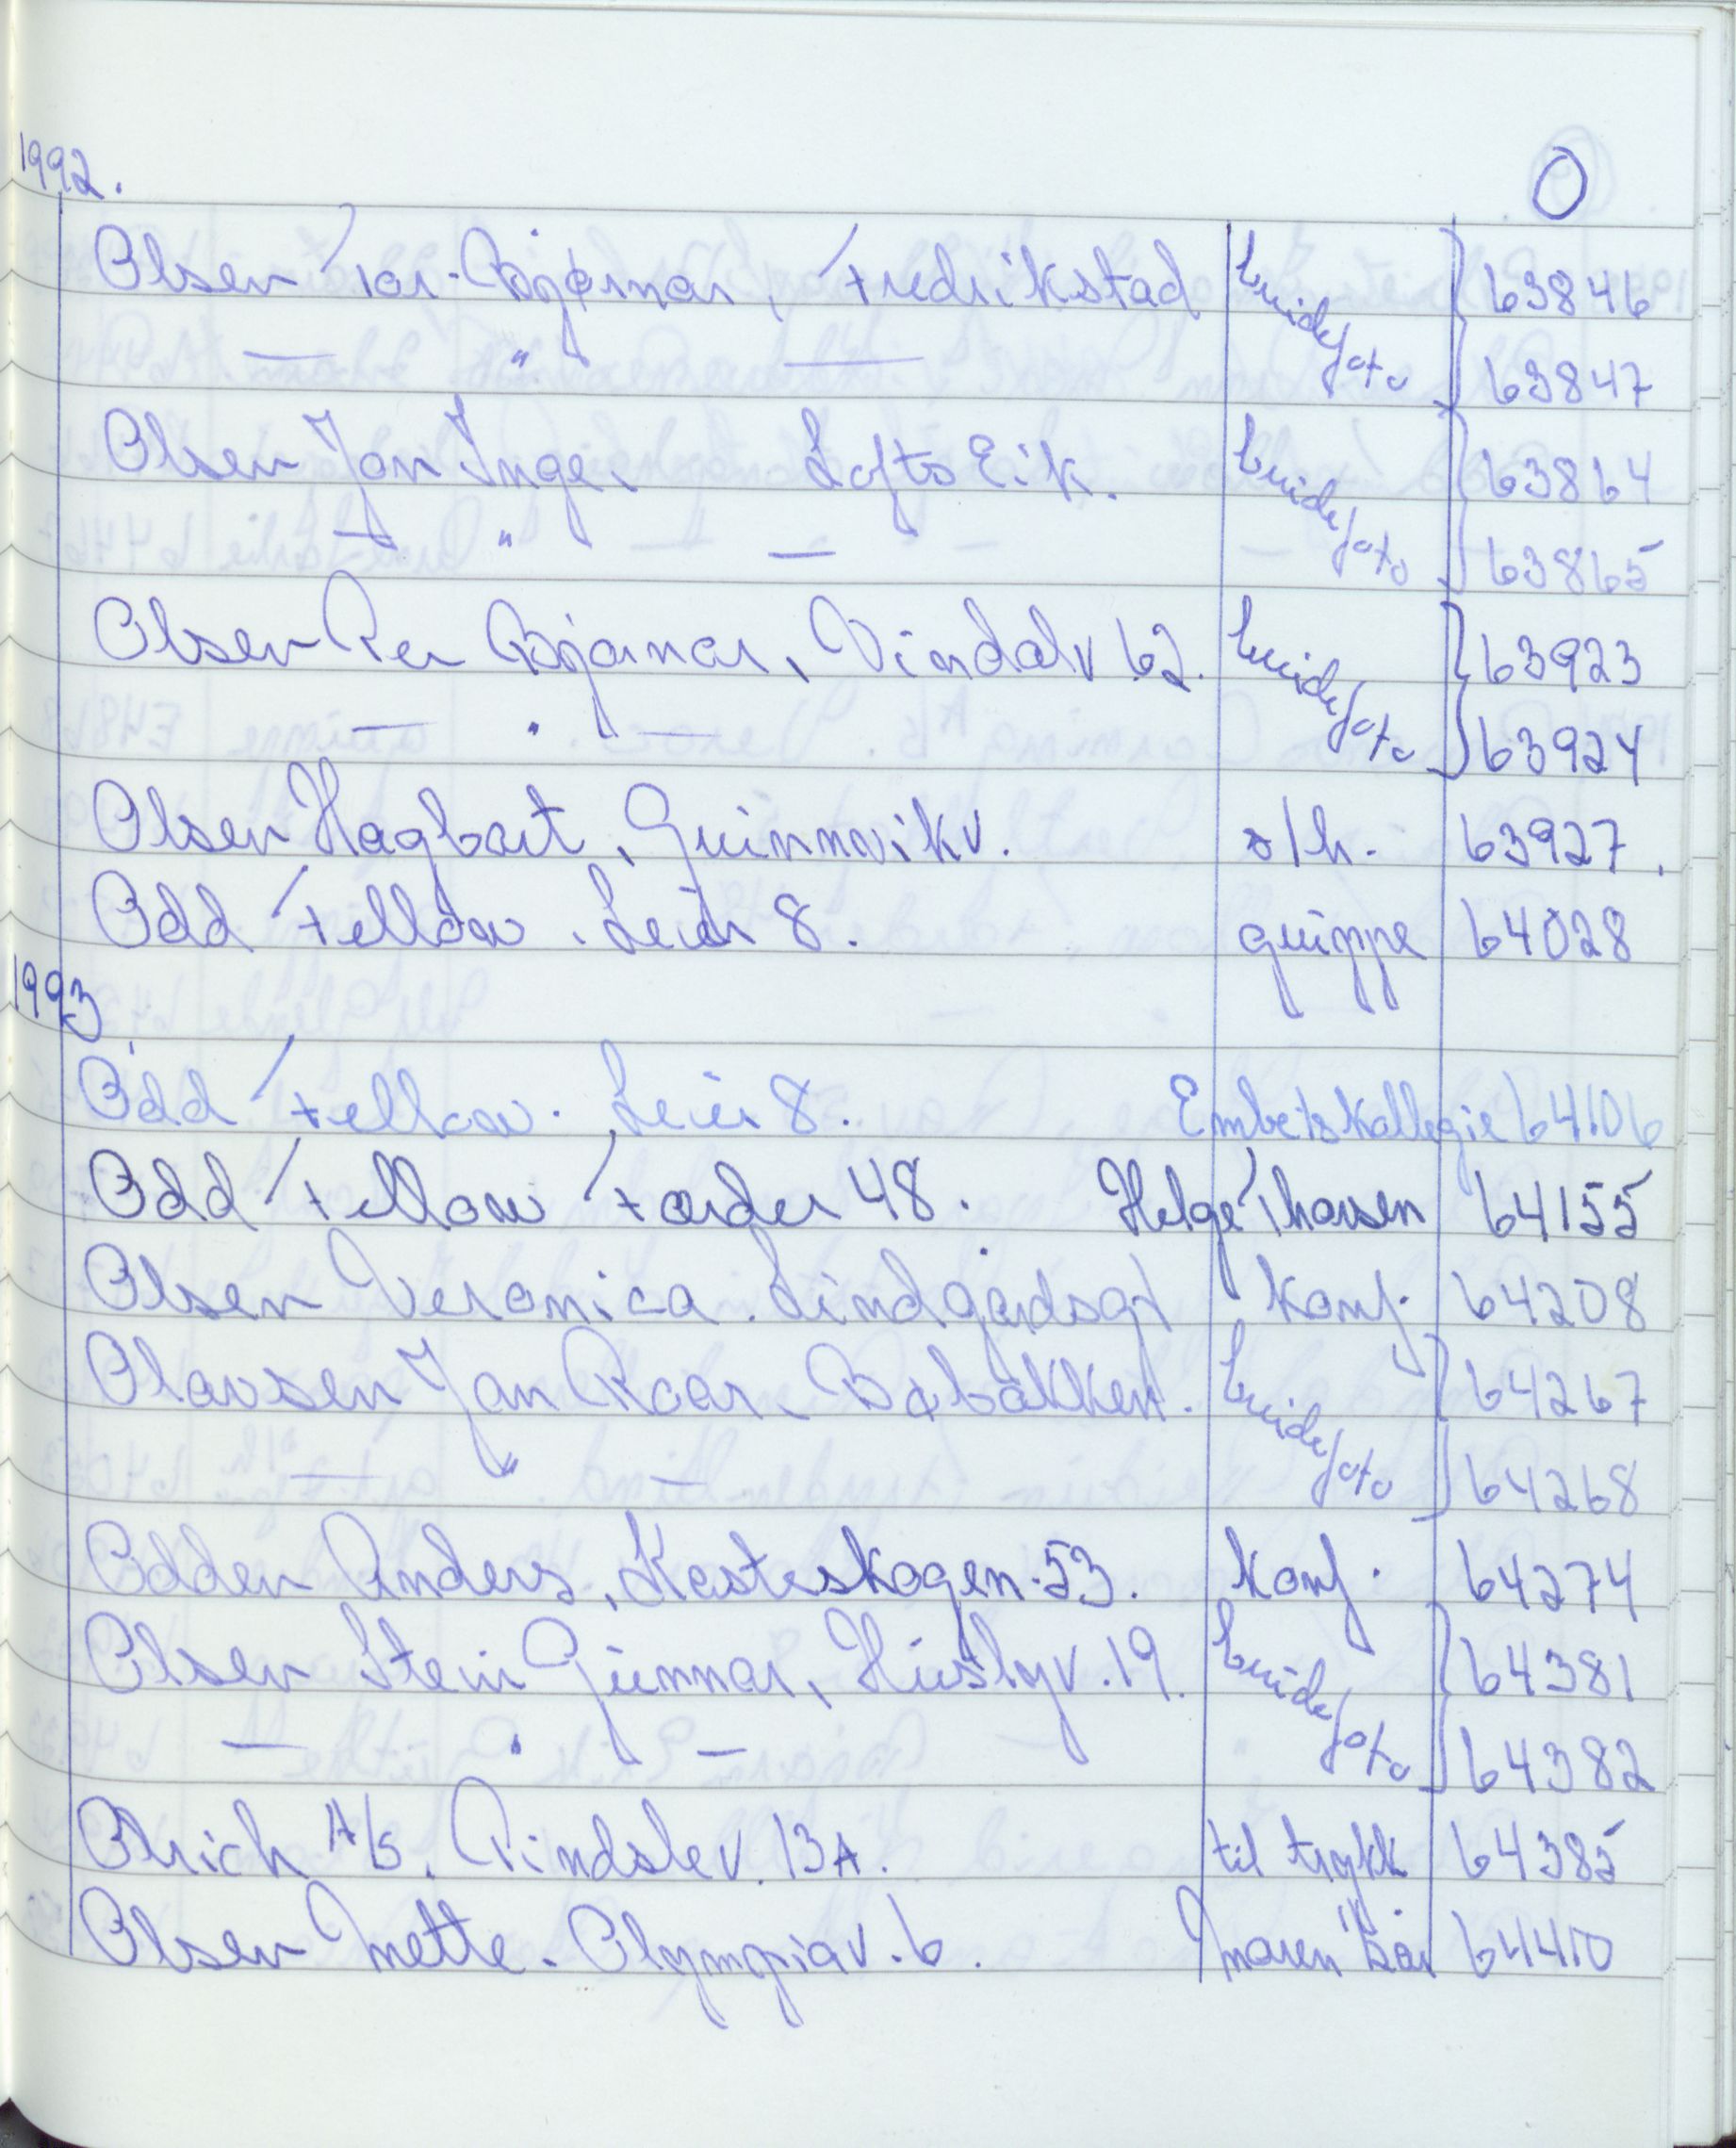 1992. O
Olsen Tor-Bjørnar, Fredrikstad brudefoto 63846
— " — 63847
Olsen Jan Inge, Lofts Eik. brudefoto 63864
— " — 63865
Olsen Per Bjørnar, Vindalv 62. brudefoto 63923
— " — 63924
Olsen Hagbart, Grimnnikv. s/h. 63927.
Odd Fellow. Leir 8. gruppe 64028
1993
Odd Fellow. Leir 8. Embetskollegie 64106
Odd Fellow Færder 48. Helge Thorsen 64155
Olsen Veronica. Lindgårdsgt konf. 64208
Olavsen Jan Roar. Bøbakken. brudefoto 64267
— " — 64268
Odden Anders, Skogen 53. konf. 64274
Olsen Stein Gunnar, Huslyv. 19. brudefoto 64381
— " — 64382
Olrich A/S. Pindslev. 13A. til trykk 64385
Olsen Mette. Olympiav. 6. Maren 64410